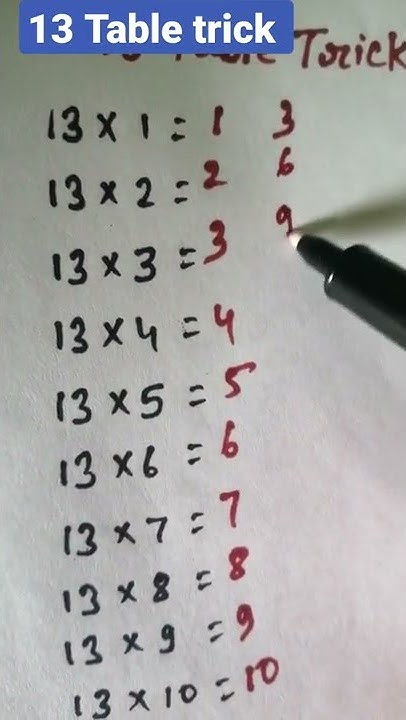 13 Table trick
Torick
13 × 1 = 1 3
13 × 2 = 2 6
13 × 3 = 3 9
13 × 4 = 4
13 × 5 = 5
13 × 6 = 6
13 × 7 = 7
13 × 8 = 8
13 × 9 = 9
13 × 10 = 10